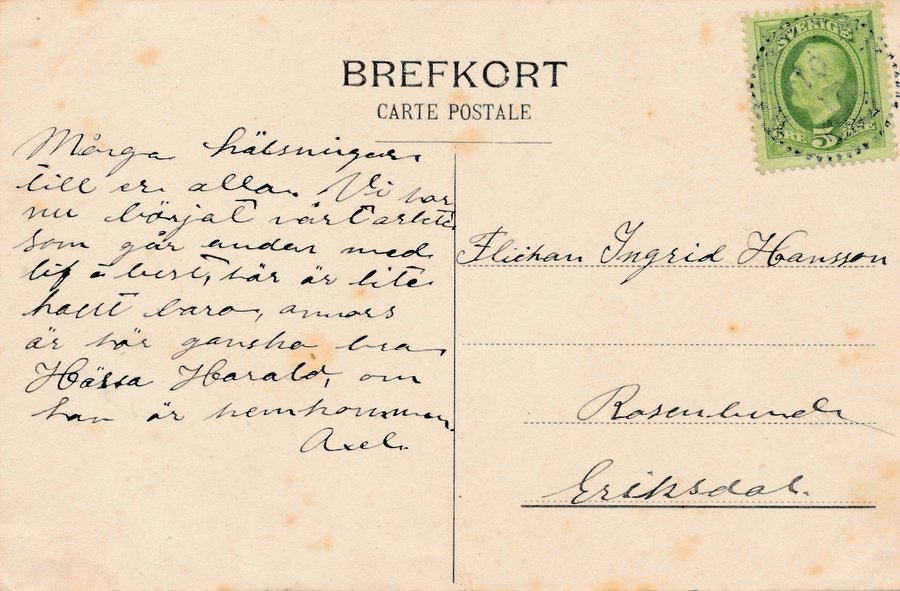 BREFKORT
CARTE POSTALE
SVERIGE
5
Många hälsningar
till er alla. Vi har
nu börjat vårt arbete
som går undan med
lif å lust, här är lite
hett bara, annars
är här ganska bra
Hälsa Harald, om
han är hemkommen.
Axel.
Flickan Ingrid Hansson
Rosenlund
Eriksdal.